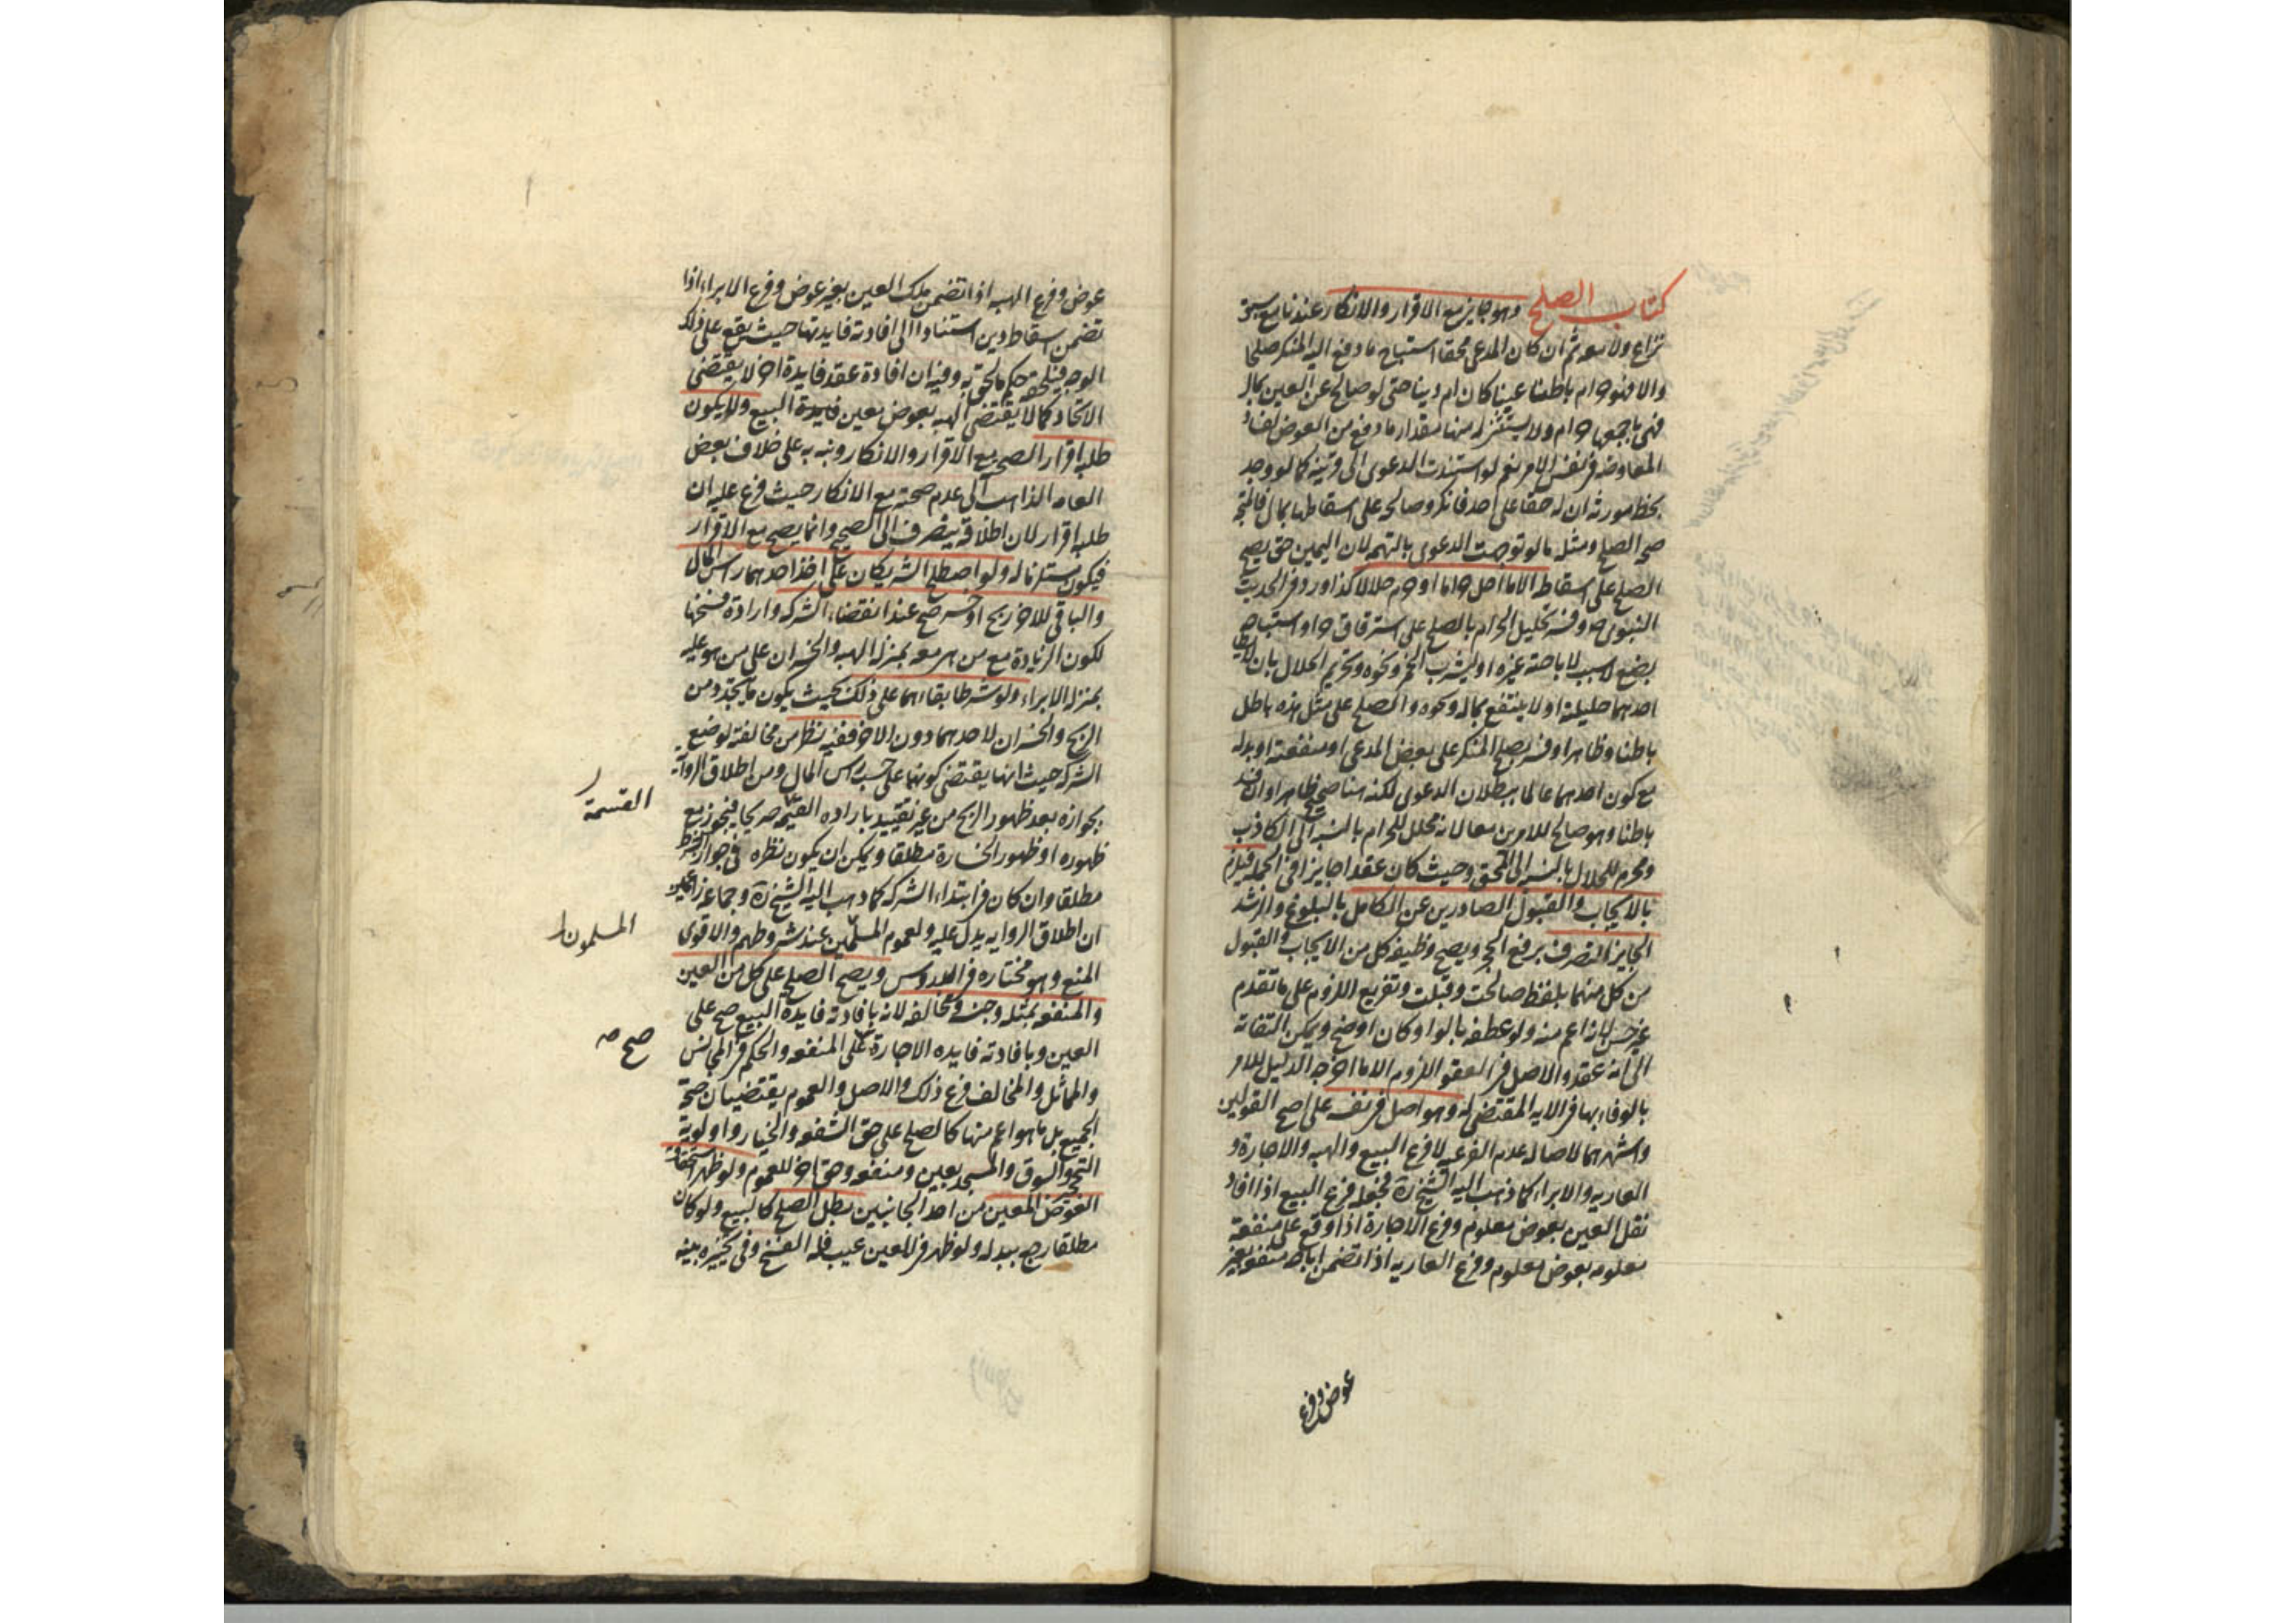 كتاب الصلح وهو جايز مع الاقرار والانكار عندنا مع سبق
نزاع ولا معه ثم ان كان المدعي محقا استباح ما دفع اليه المنكر صلحا
والا فهو حرام باطنا عينا كان ام دينا حتى لو صالح عن العين بمال
فهي باجمعها حرام ولا يستثنى له منها مقدار ما دفع من العوض لفساد
المعاوضه في نفس الامر نعم لو استندت الدعوى الى قرينه كما لو وجد
بخط مورثه ان له حقا على احد فانكر وصالحه على اسقاطها بمال فالمتجه
صحه الصلح ومثله ما لو توجهت الدعوى بالتهمه لان اليمين حق يصح
الصلح على اسقاطه الا ما احل حراما او حرم حلالا كذا ورد في الحديث
النبوى ص وفسر تحليل الحرام بالصلح على استرقاق حر او استباحه
بضع لا سبب لاباحته غيره او ليشرب الخمر ونحوه وتحريم الحلال بان لا يطأ
احدهما حليلته او لا ينتفع بماله ونحوه والصلح على مثل هذه باطل
باطنا وظاهرا وفسر بصلح المنكر على بعض المدعى او منفعته او بدله
مع كون احدهما عالما ببطلان الدعوى لكنه هنا صحيح ظاهرا وان فسد
باطنا وهو صالح للامرين معا لانه محلل للحرام بالنسبه الى الكاذب
ومحرم للحلال بالنسبه الى المحق وحيث كان عقدا جايزا في الجمله فيلزم
بالايجاب والقبول الصادرين عن الكامل بالبلوغ والرشد
الجايز التصرف برفع الحجر ويصح وظيفه كل من الايجاب والقبول
من كل منهما بلفظ صالحت وقبلت وتفريع اللزوم على ما تقدم
غير حسن لانه اعم منه ولو عطفه بالواو كان اوضح ويمكن التفاته
الى انه عقد والاصل في العقود اللزوم الا ما اخرجه الدليل للامر
بالوفاء بها في الايه المقتضى له وهو اصل في نفسه على اصح القولين
واشهرهما لاصاله عدم الفرعيه لا فرع البيع والهبه والاجارة و
العاريه والابراء كما ذهب اليه الشيخ ره فجعله فرع البيع اذا افاد
نقل العين بعوض معلوم وفرع الاجارة اذا وقع على منفعة
معلومه بعوض معلوم وفرع العاريه اذا تضمن اباحه منفعه بغير
عوض وفرع
عوض وفرع الهبه اذا تضمن ملك العين بغير عوض وفرع الابراء اذا
تضمن اسقاط دين استنادا الى افادته فايدتها حيث يقع على ذلك
الوجه فيلحقه حكم ما لحق به وفيه ان افادة عقد فايدة اخر لا يقتضى
الاتحاد كما لا يقتضى الهبه بعوض معين فايدة البيع ولا يكون
طلبه اقرار الصحته مع الاقرار والانكار ونبه به على خلاف بعض
العامه الذاهب الى عدم صحته مع الانكار حيث فرع عليه ان
طلبه اقرار لان اطلاقه ينصرف الى الصحيح وانما يصح مع الاقرار
فيكون مستلزما له ولو اصطلح الشريكان على اخذ احدهما راس المال
والباقى للاخر ربح او خسر صح عند انقضاء الشركه وارادة فسخها
لكون الزيادة مع من هى معه بمنزله الهبه والخسران على من هو عليه
بمنزله الابراء ولو شرطا بقاءهما على ذلك بحيث يكون ما يتجدد من
الربح والخسران لاحدهما دون الاخر ففيه نظر من مخالفته لوضع
الشركه حيث انها يقتضى كونهما على حسب راس المال ومن اطلاق الروايه
بجوازه بعد ظهور الربح من غير تقييد باراده القسمه صريحا فيجوز مع
القسمة
ظهوره او ظهور الخسارة مطلقا ويمكن ان يكون نظره فى جواز الشرط
مطلقا وان كان فى ابتداء الشركه كما ذهب اليه الشيخ ره وجماعه زاعمين
ان اطلاق الروايه يدل عليه ولعموم المسلمين عند شروطهم والاقوى
المسلمون
المنع وهو مختاره فى الدروس ويصح الصلح على كل من العين
والمنفعه بمثله وجنسه ومخالفه لانه بافادته فايدة البيع صح على
العين وبافادته فايده الاجارة على المنفعه والحكم فى المجانس
صح
والمماثل والمخالف فرع ذلك والاصل والعموم يقتضيان صحة
الجميع بل ما هو اعم منها كالصلح على حق الشفعه والخيار واولوية
التحجير والسوق والمسجد بعين ومنفعه وحق اخر للعموم ولو ظهر استحقاق
العوض المعين من احد الجانبين بطل الصلح كالبيع ولو كان
مطلقا رجع ببدله ولو ظهر فى المعين عيب فله الفسخ وفى تخييره بينه